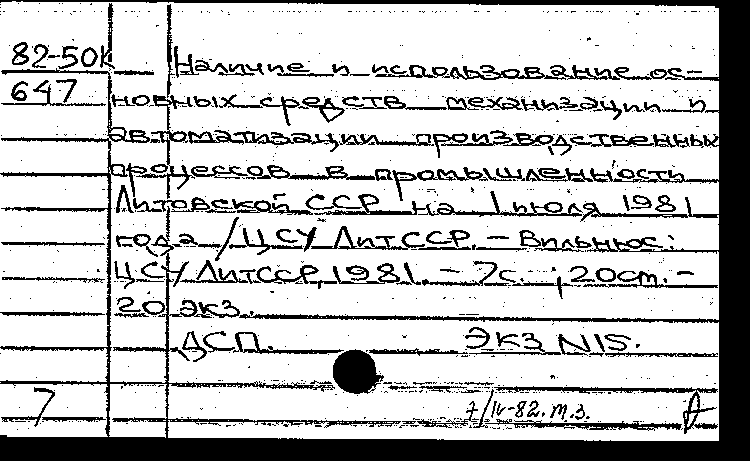 82-50к Наличие и использование ос-
647 новных средств механизации и
автоматизации производственных
процессов в промышленности
Литовской ССР на 1 июля 1981
года / ЦСУ ЛитССР. - Вильнюс:
ЦСУ ЛитССР, 1981. - 7с. ; 20см. -
20 экз.
ДСП. Экз N15.
7 7/IV-82. т.з.